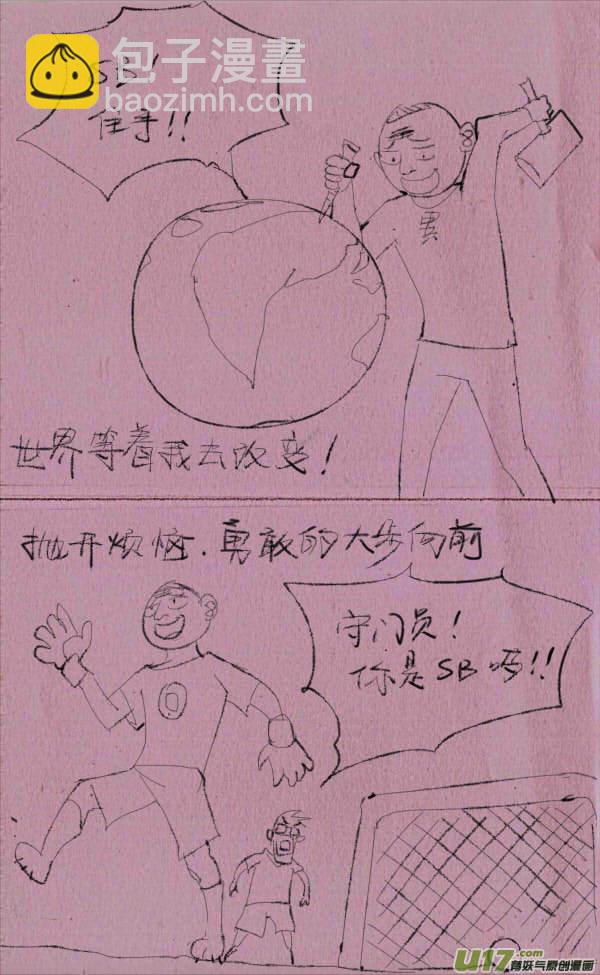 SB!
住手!!
包子漫畫
baozimh.com
世界等着我去改变!
抛开烦恼.勇敢的大步向前
守门员!
你是SB吗!!
0
U17.com
有妖气原创漫画